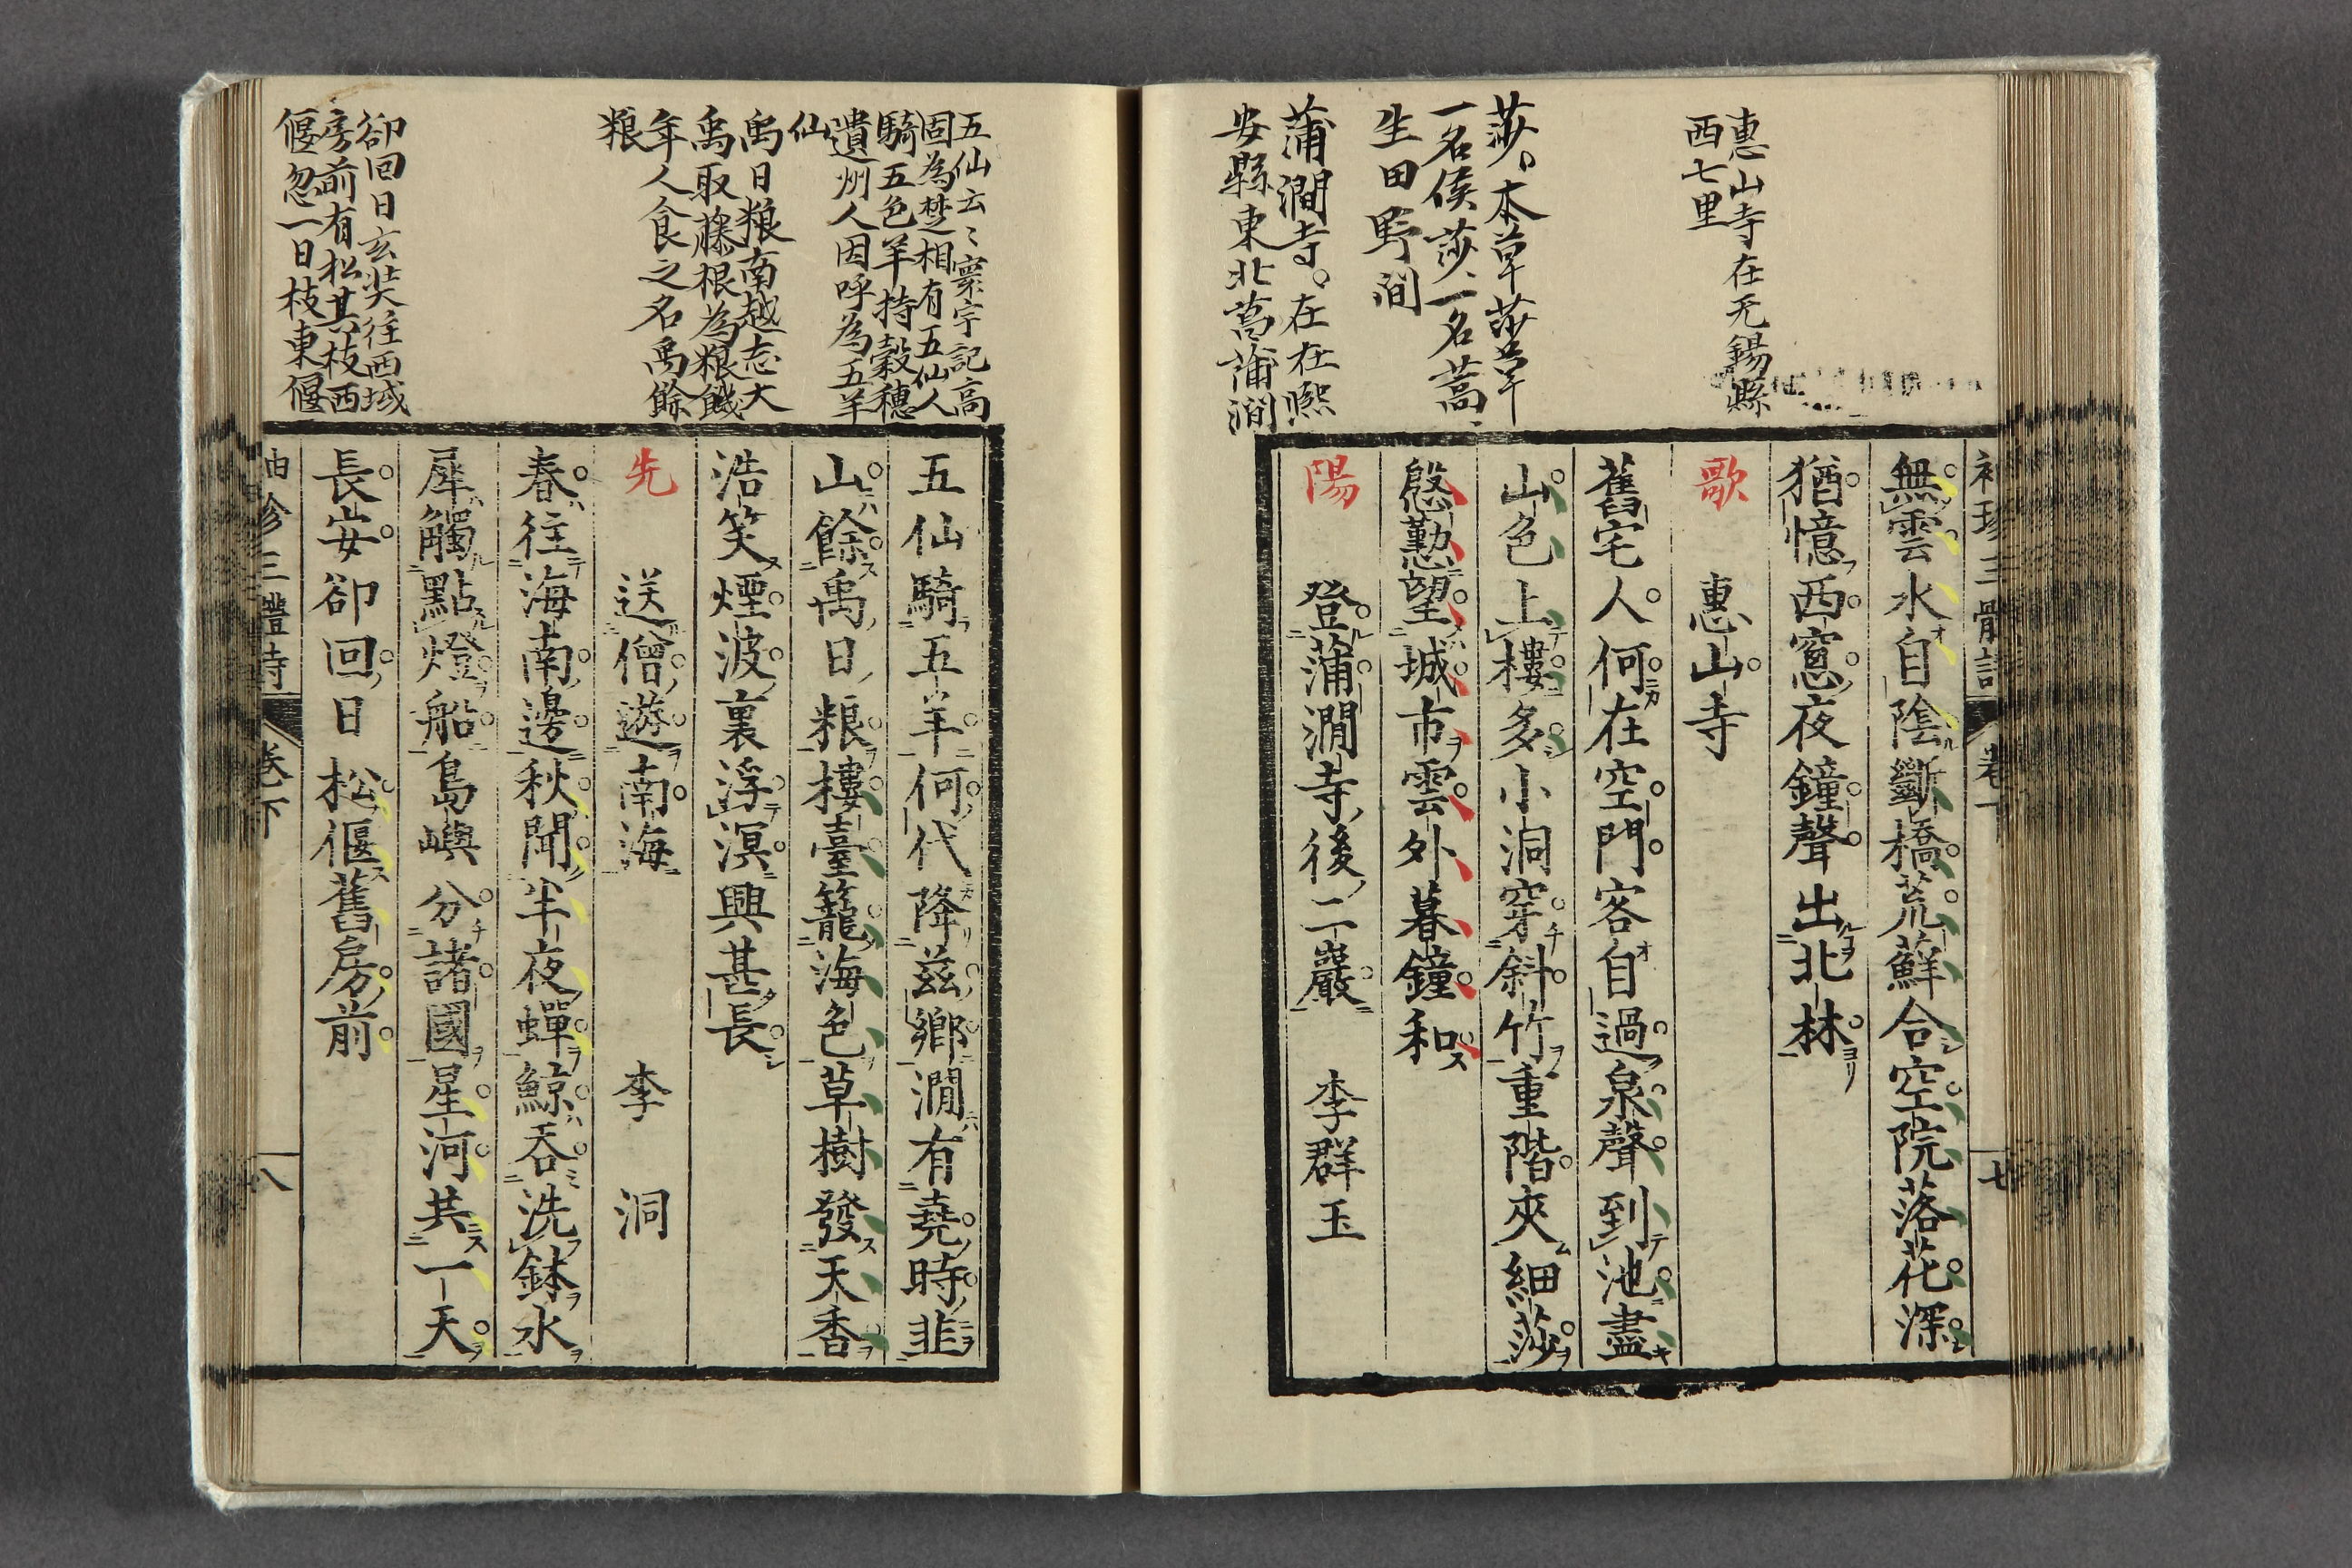 惠山寺在无錫縣
西七里
莎本草莎草
一名侯莎一名蒿
生田野澗
蒲澗寺在在熙
安縣東北菖蒲澗
無雲水自陰斷橋荒蘚合空院落花深
猶憶西窓夜鐘聲出北林
歌　惠山寺
舊宅人何在空門客自過泉聲到池盡
山色上樓多小洞穿斜竹重階夾細莎
慇懃望城市雲外暮鐘和
陽　登蒲澗寺後二巖　李群玉
五仙云々寰宇記高
固為楚相有五仙人
騎五色羊持穀穗
遺州人因呼為五羊
仙
禹日粮南越志大
禹取藤根為粮饑
年人食之名禹餘
粮
卻回日玄奘往西域
房前有松其枝西
偃忽一日枝東偃
五仙騎五羊何代降茲鄉澗有堯時韭
山餘禹日粮樓臺籠海色草樹發天香
浩笑煙波裏浮溟興甚長
先　送僧遊南海　李洞
春往海南邊秋聞半夜蟬鯨吞洗鉢水
犀觸點燈船島嶼分諸國星河共一天
長安卻回日松偃舊房前
三體詩　卷下　八